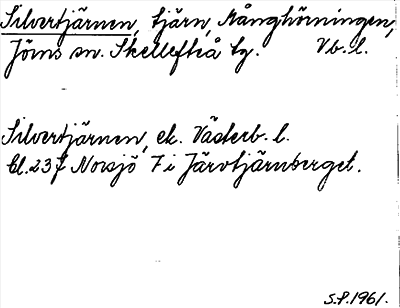 Silvertjärnen, tjärn, Månghörningen,
Jörns sn. Skellefteå tg. Vb. l.
Silvertjärnen, ek. Västerb. l.
bl. 237 Norsjö 7 i Järvtjärnberget.
S.P. 1961.